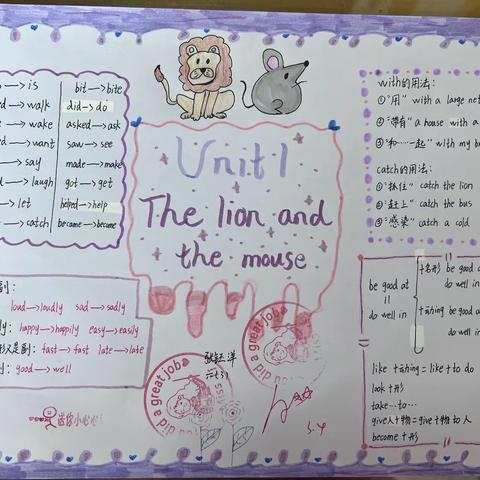 →is
→walk
→wake
→want
→say
→laugh
→let
→catch
bit→bite
did→do
asked→ask
saw→see
made→make
got→get
helped→help
became→become
Unit1
The lion and
the mouse
with的用法:
①"用" with a large net
②"带有" a house with a
③"和……一起" with my b
catch的用法:
①"抓住" catch the lion
②"赶上" catch the bus
③"感染" catch a cold
be good at
||
do well in
+名/形 be good a
do well in
+动ing be good a
do well in
like +动ing = like + to do
look +形
take…to…
give人+物=give+物 to 人
become +形
副:
loud→loudly sad→sadly
ly: happy→happily easy→easily
形又是副: fast→fast late→late
good→well
送你小心心
did a great job
did a great job
5.4